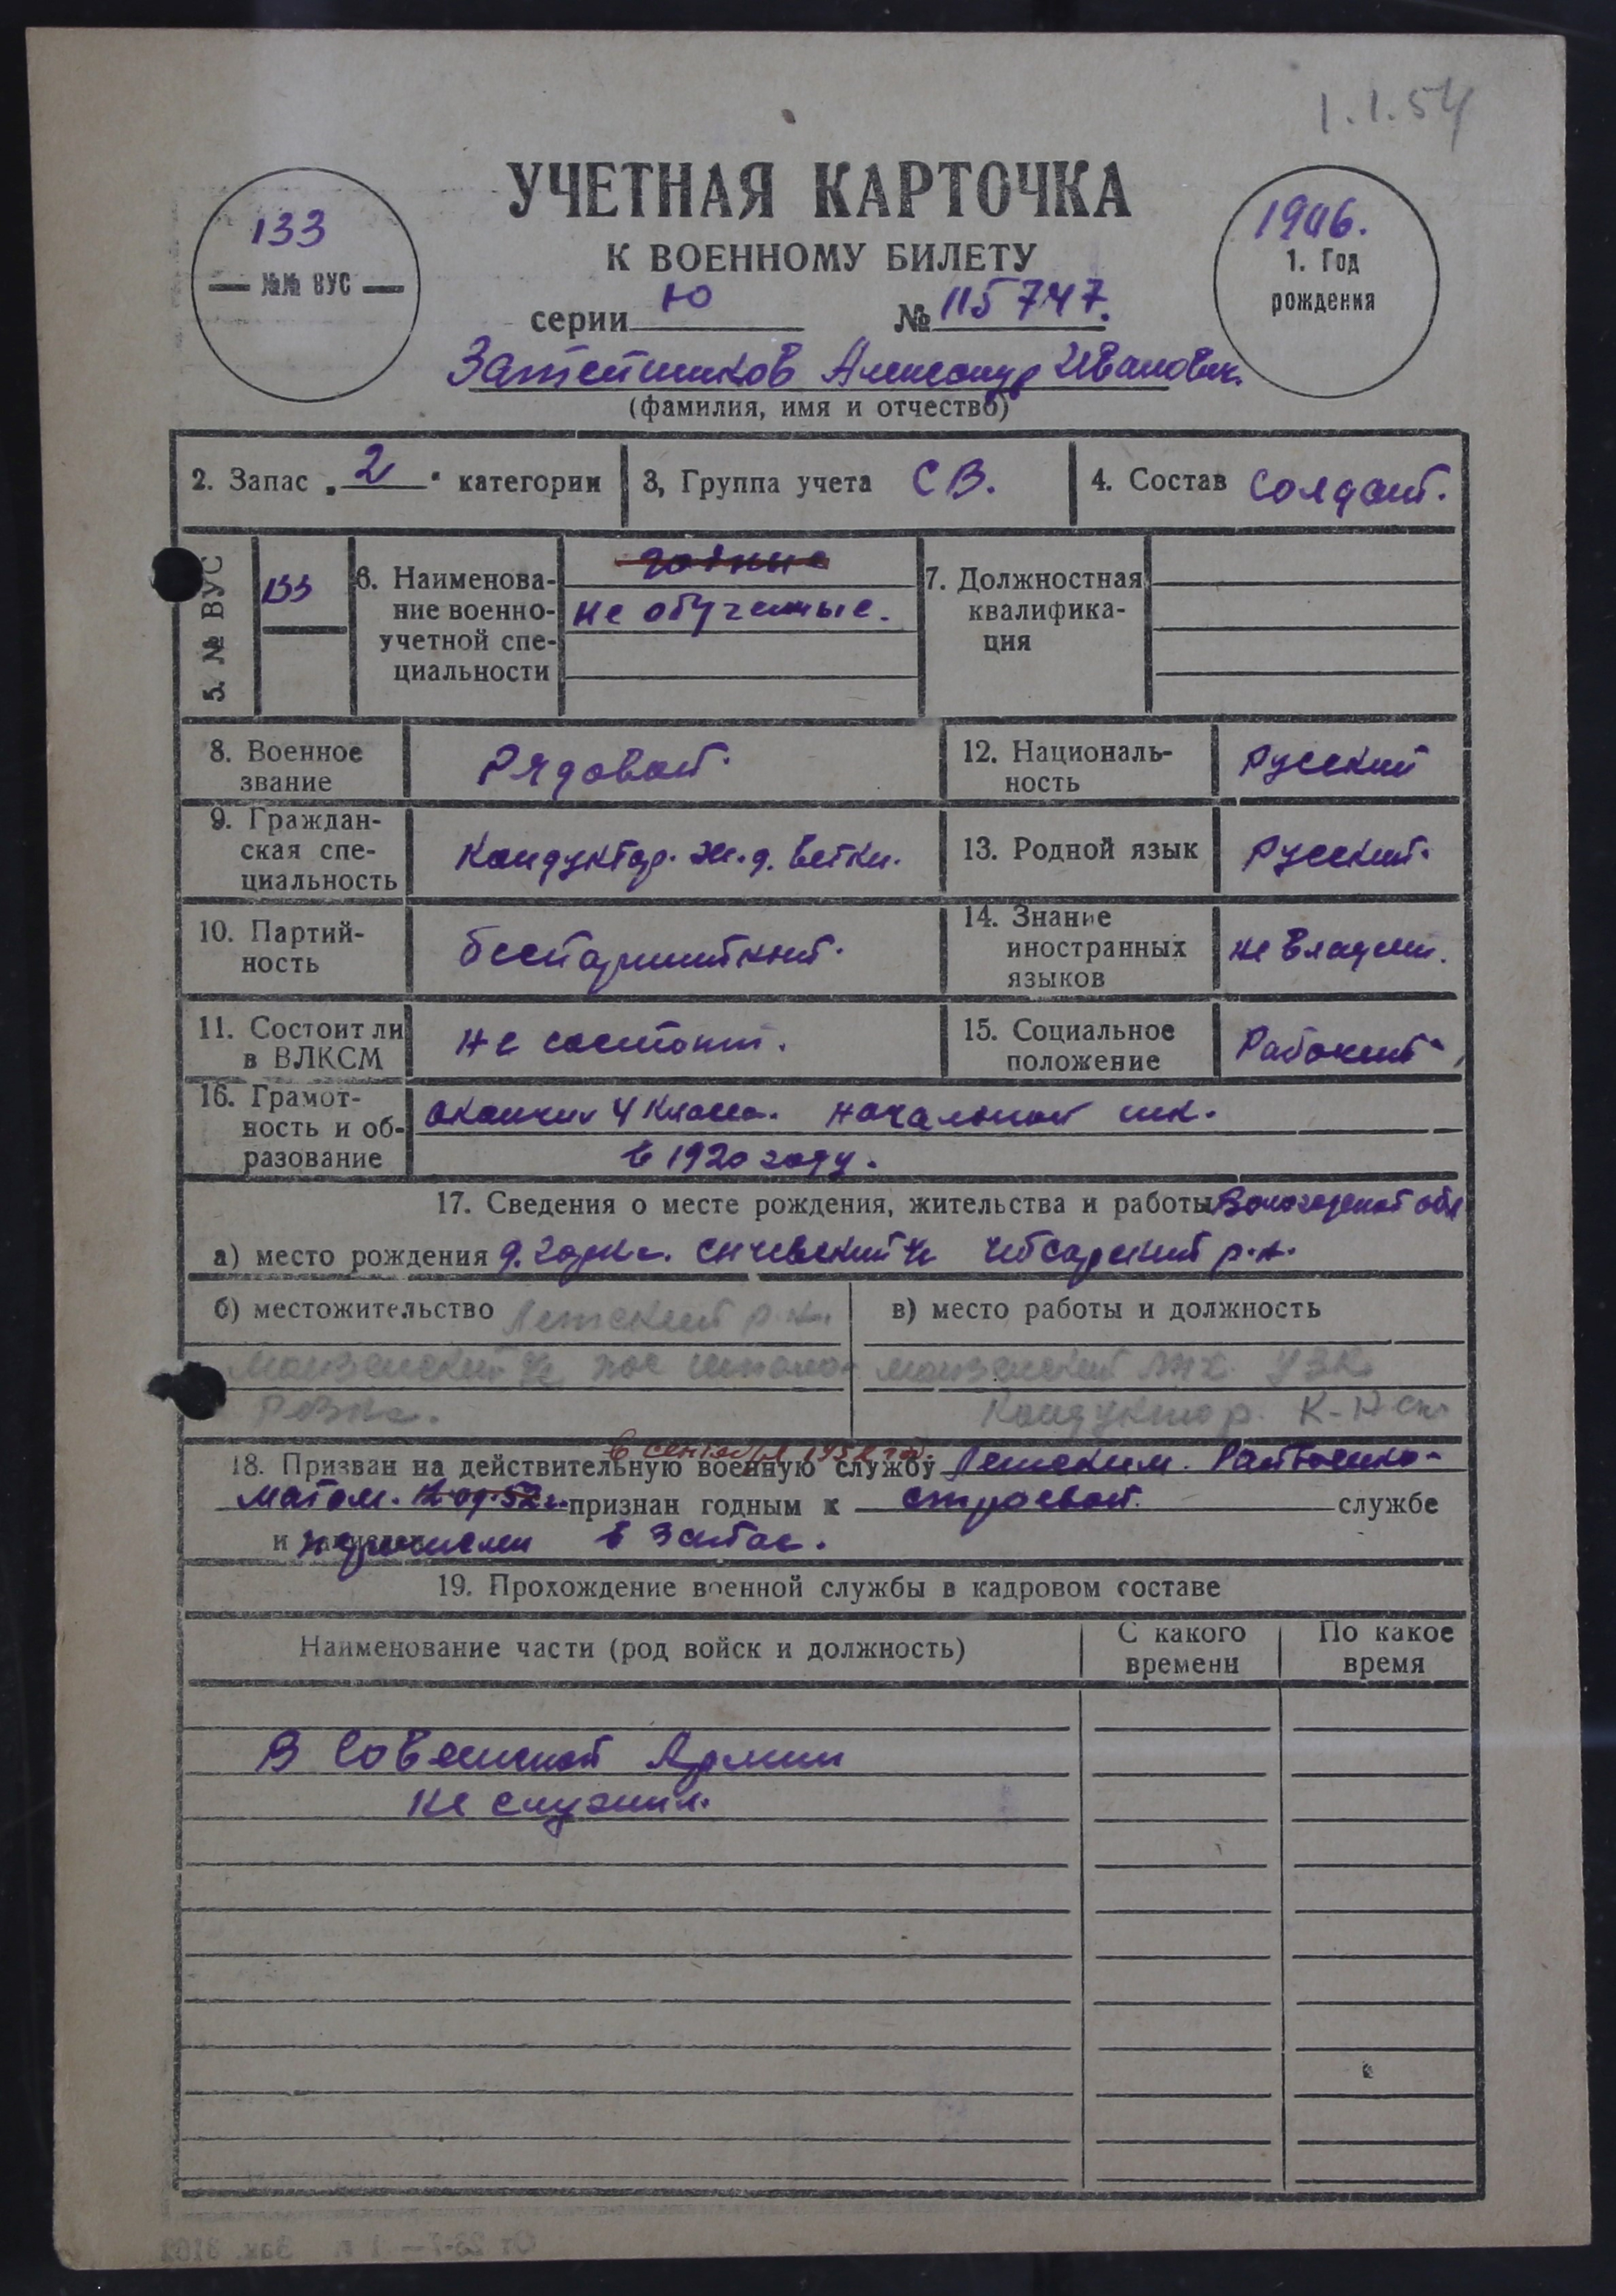 1.1.54
УЧЕТНАЯ КАРТОЧКА
К ВОЕННОМУ БИЛЕТУ
133
— №№ ВУС —
1906.
1. Год
рождения
серии Ю № 115747.
Александр Иванович.
(фамилия, имя и отчество)
2. Запас „2" категории
3, Группа учета СВ.
4. Состав Солдат.
5. № ВУС
133
6. Наименова-
ние военно-
учетной спе-
циальности
годные
не обученные.
7. Должностная
квалифика-
ция
8. Военное
звание
Рядовой.
12. Националь-
ность
Русский
9. Граждан-
ская спе-
циальность
Кондуктор. ж.д. ветки.
13. Родной язык
Русский.
10. Партий-
ность
беспартийный.
14. Знание
иностранных
языков
не владеет.
11. Состоит ли
в ВЛКСМ
не состоит.
15. Социальное
положение
Рабочий
16. Грамот-
ность и об-
разование
окончил 4 класса. начальной шк.
в 1920 году.
17. Сведения о месте рождения, жительства и работы Вологодской обл
а) место рождения д. Горка. с/с Чебсарский р.н.
б) местожительство Летский р.н.
с/с пос
в) место работы и должность
Кондуктор.
18. Призван на действительную военную службу Летским. Райвоенко-
в сентябре 1952 год.
матом. 12.09.52 г. признан годным к строевой. службе
и зачислен в запас.
19. Прохождение военной службы в кадровом составе
Наименование части (род войск и должность)
С какого
времени
По какое
время
В Советской Армии
не служил.